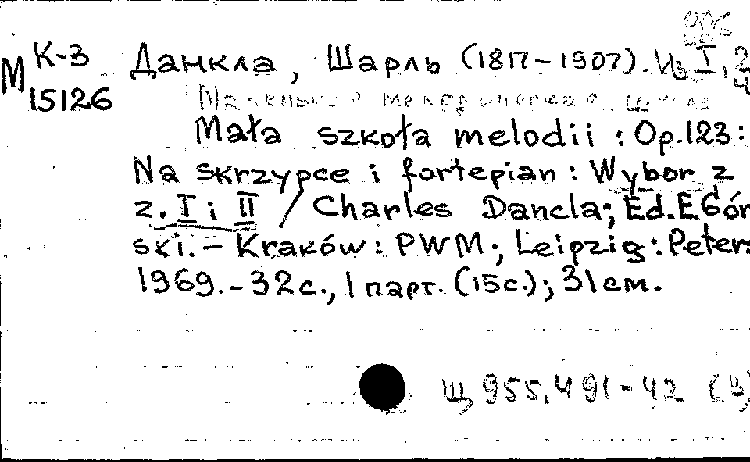 К-3 Данкла, Шарль (1817-1907). Из I, 2
М 15126
Mała szkoła melodii : Op.123 :
Na skrzypce i fortepian : Wybor z
z. I i II / Charles Dancla; Ed. E Gór
ski. - Kraków : PWM; Leipzig : Peters
1969. - 32 с., 1 парт. (15с.); 31 см.
Щ 955.491-42